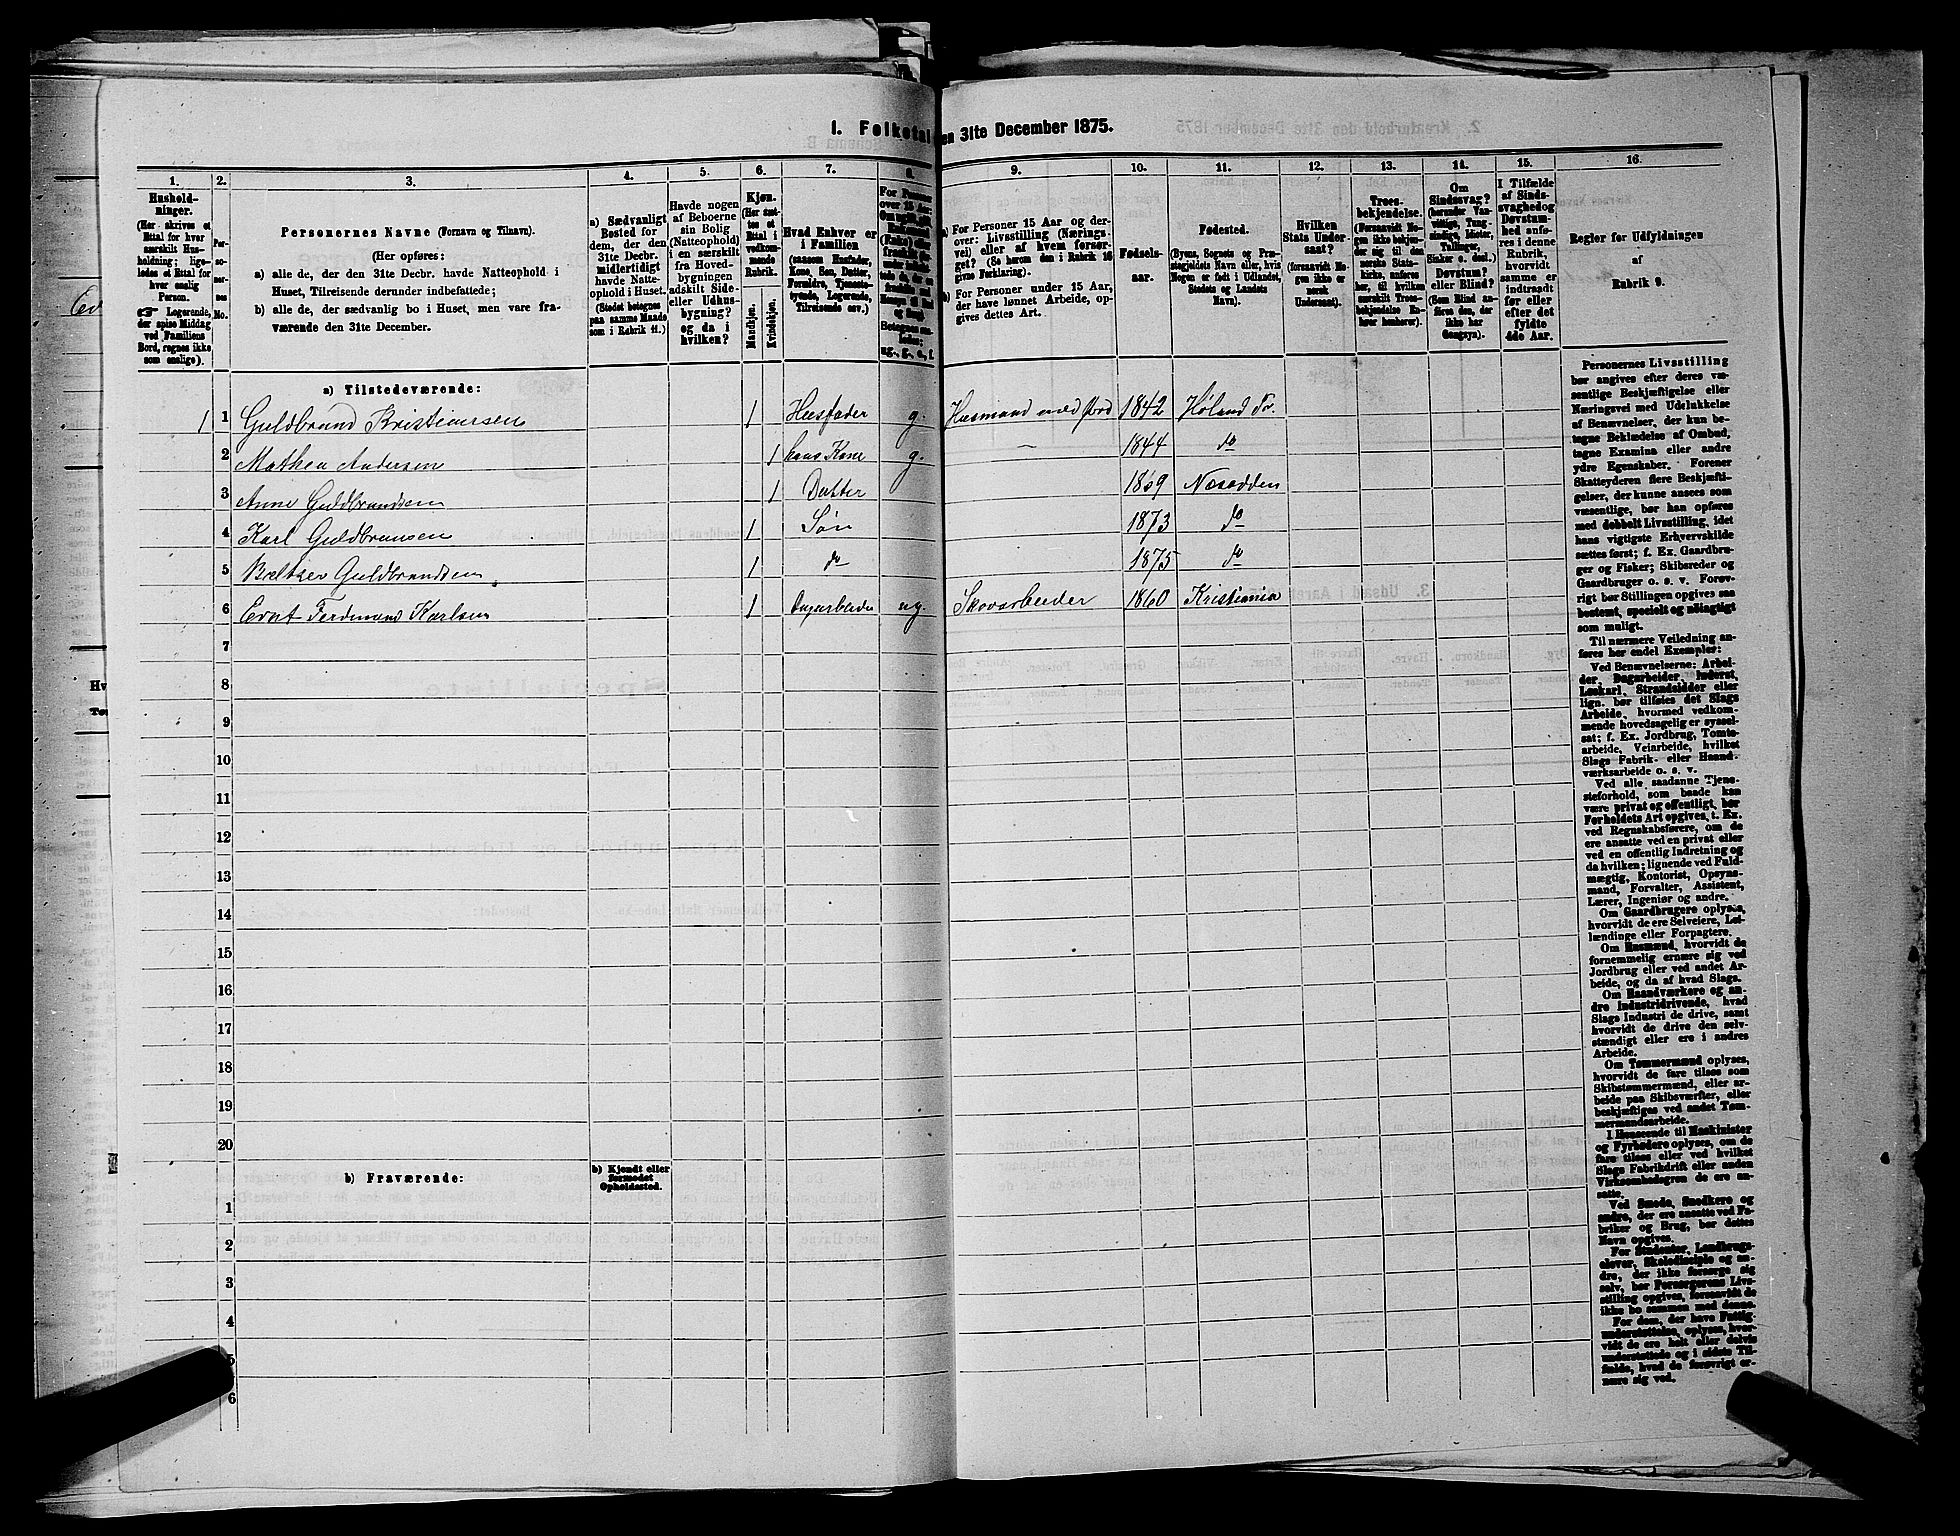 I. Folketal den 31te December 1875.
1. 2. 3. 4. 5. 6. 7. 8. 9. 10. 11. 12. 13. 14. 15. 16.
Hushold-
ninger.
(Her skrives et
Ettal for hver
særskilt Hus-
holdning; lige-
ledes et Ettal for
hver enslig
Person.
☞ Logerende,
der spise Middag
ved Familiens
Bord, regnes ikke
som enslige).
Per-
so-
ner-
nes
No.
Personernes Navne (Fornavn og Tilnavn).
(Her opføres:
a) alle de, der den 31te Decbr. havde Natteophold i
Huset, Tilreisende derunder indbefattede;
b) alle de, der sædvanlig bo i Huset, men vare fra-
værende den 31te December.
a) Sædvanligt
Bosted for
dem, der den
31te Decbr.
midlertidigt
havde Natte-
ophold i Huset.
(Stedet betegnes
paa samme Maade
som i Rubrik 11.)
Havde nogen
af Beboerne
sin Bolig
(Natteophold)
i en særskilt
fra Hoved-
bygningen
adskilt Side-
eller Udhus-
bygning?
og da i
hvilken?
Kjøn.
(Her sæt-
tes et
Ettal i
vedkom-
mende
Rubrik.
Mandkjøn.
Kvindekjøn.
Hvad Enhver er
i Familien
(saasom Husfader,
Kone, Søn, Datter,
Forældre, Tjeneste-
tyende, Logerende,
Tilreisende osv.)
For Personer
over 15 Aar:
ug., g., e., f.
a) For Personer 15 Aar og der-
over: Livsstilling (Nærings-
vei) eller af hvem forsør-
get? (Se herom den i Rubrik 16
givne Forklaring).
b) For Personer under 15 Aar,
der have lønnet Arbeide, op-
gives dettes Art.
Fødsels-
aar.
Fødested.
(Byens, Sognets og Præ-
stegjeldets Navn eller, hvis
Nogen er født i Udlandet,
Stedets og Landets
Navn).
Hvilken
Stats Under-
saat?
(forsaavidt No-
gen ikke er
norsk
Undersaat).
Troes-
bekjendelse.
(Forsaavidt No-
gen ikke bekjen-
der sig til den
norske Stats-
kirke, anføres
her, til hvilken
særskilt Troes-
bekjendelse En-
hver henhører).
Om
Sindssvag?
(herunder Van-
vittige, Tung-
sindige, Idioter,
Tullinger,
Sinker o. desl.)
Døvstum?
eller Blind?
(Som Blind an-
føres den, der
ikke har
Gangsyn).
I Tilfælde
af Sinds-
svaghed og
Døvstum-
hed anfø-
res i denne
Rubrik,
hvorvidt
samme er
indtraadt
før eller
efter det
fyldte
4de Aar.
Regler for Udfyldningen
af
Rubrik 9.
a) Tilstedeværende:
1 1 Guldbrand Kristiansen 1 Husfader g. Husmand med Jord 1842 Høland Pr.
2 Mathea Andersen 1 hans Kone g. — 1844 do
3 Anne Guldbrandsen 1 Datter 1869 Næsodden
4 Karl Guldbransen 1 Søn 1873 do
5 Baltser Guldbrandsen 1 do 1875 do
6 Ferdinand Karlsen 1 ug. Skovarbeider 1860 Kristiania
7
8
9
10
11
12
13
14
15
16
17
18
19
20
b) Fraværende:
b) Kjendt eller
formodet
Opholdssted.
1
2
3
4
5
6
Personernes Livsstilling
bør angives efter deres væ-
sentlige Beskjæftigelse eller
Næringsvei med Udelukkelse
af Benævnelser, der kun be-
tegne Beklædelse af Ombud,
tagne Examina eller andre
ydre Egenskaber. Forener
Skatteyderen flere Beskjæfti-
gelser, der kunne ansees som
væsentlige, bør han opføres
med dobbelt Livsstilling, idet
hans vigtigste Erhvervskilde
sættes først; f. Ex. Gaardbru-
ger og Fisker; Skibsreder og
Gaardbruger o. s. v. Forøv-
rigt bør Stillingen opgives saa
bestemt, specielt og nøiagtigt
som muligt.
Til nærmere Veiledning an-
føres her endel Exempler:
Ved Benævnelserne: Arbei-
der, Dagarbeider, Inderst,
Løskarl, Strandsidder eller
lign. bør tilføies det Slags
Arbeide, hvormed vedkom-
mende hovedsagelig er syssel-
sat; f. Ex. Jordbrug, Tomte-
arbeide, Veiarbeide, hvilket
Slags Fabrik- eller Haand-
værksarbeide o. s. v.
Ved alle saadanne Tjene-
steforhold, som baade kan
være privat og offentligt, bør
Forholdets Art opgives, t. Ex.
ved Regnskabsførere, om de
ere ansatte ved en privat eller
ved en offentlig Indretning og
da hvilken; lignende ved Fuld-
mægtig, Kontorist, Opsyns-
mand, Forvalter, Assistent,
Lærer, Ingeniør og andre.
Om Gaardbrugere oplyses,
hvorvidt de ere Selveiere, Lei-
lændinge eller Forpagtere.
Om Husmænd, hvorvidt de
fornemmelig ernære sig ved
Jordbrug eller ved andet Ar-
beide, og da af hvad Slags.
Om Haandværkere og an-
dre Industridrivende, hvad
Slags Industri de drive, samt
hvorvidt de drive den selv-
stændigt eller ere i andres
Arbeide.
Om Tømmermænd oplyses,
hvorvidt de fare tilsøs som
Skibstømmermænd, eller ar-
beide paa Skibsværfter, eller
beskjæftiges ved andet Tøm-
mermandsarbeide.
I Henseende til Maskinister
og Fyrbødere oplyses, om de
fare tilsøs eller ved hvilket
Slags Fabrikdrift eller anden
Virksomhedsgren de ere an-
satte.
Ved Smede, Snedkere og
andre, der ere ansatte ved Fa-
briker og Brug, bør dettes
Navn opgives.
For Studenter, Landbrugs-
elever, Skoledisciple og an-
dre, der ikke forsørge sig
selv, bør Forsørgerens Livs-
stilling opgives, forsaavidt de
ikke bo sammen med denne.
For dem, der have Fattig-
understøttelse, oplyses, hvor-
vidt de ere helt eller delvis
understøttede og i sidste Til-
fælde, hvad de forøvrigt er-
nære sig ved.